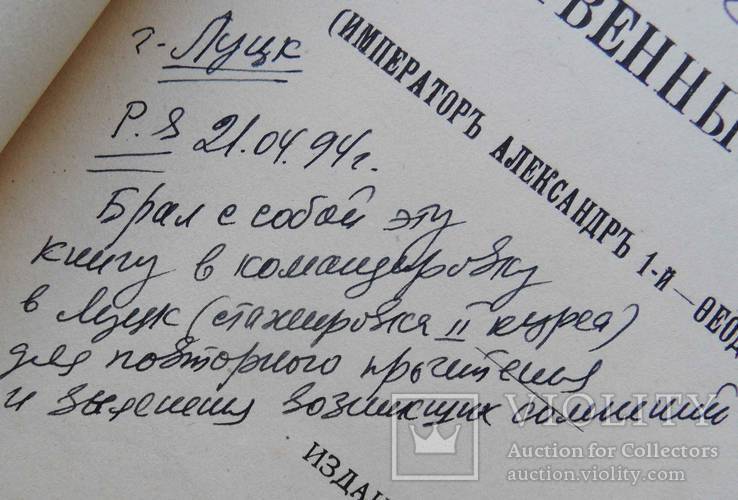 г. Луцк
P.S 21.04.94г.
Брал с собой эту
книгу в командировку
в Луцк (стажировка II курса)
для повторного прочтения
и выяснения возникших сомнений
ВЕННЫ
(ИМПЕРАТОРЪ АЛЕКСАНДРЪ 1-й — ѲЕОД
ИЗДАН
VIOLITY
Auction for Collectors
auction.violity.com